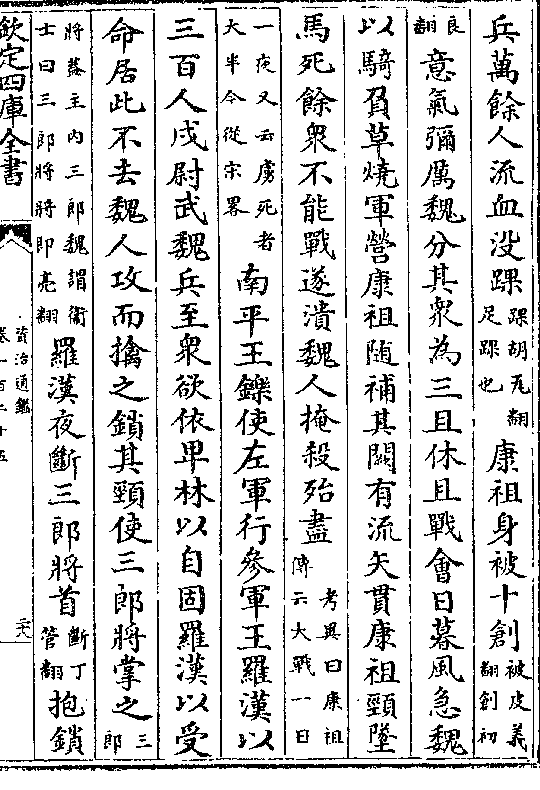 兵萬餘人流血没踝踝胡瓦翻足踝也康祖身被十創被皮義翻創初
良翻意氣彌厲魏分其衆為三且休且戰會日暮風急魏
以騎負草燒軍營康祖随補其闕有流矢貫康祖頸墜
馬死餘衆不能戰遂潰魏人掩殺殆盡考異曰康祖傳云大戰一日
一夜又云虜死者大半今從宋畧南平王鑠使左軍行參軍王羅漢以
三百人戍尉武魏兵至衆欲依卑林以自固羅漢以受
命居此不去魏人攻而擒之鎖其頸使三郎將掌之三郎
將葢主内三郎魏謂衛士曰三郎將將即亮翻羅漢夜斷三郎將首斷丁管翻抱鎖
欽定四庫全書
資治通鑑
卷一百二十五
二十八